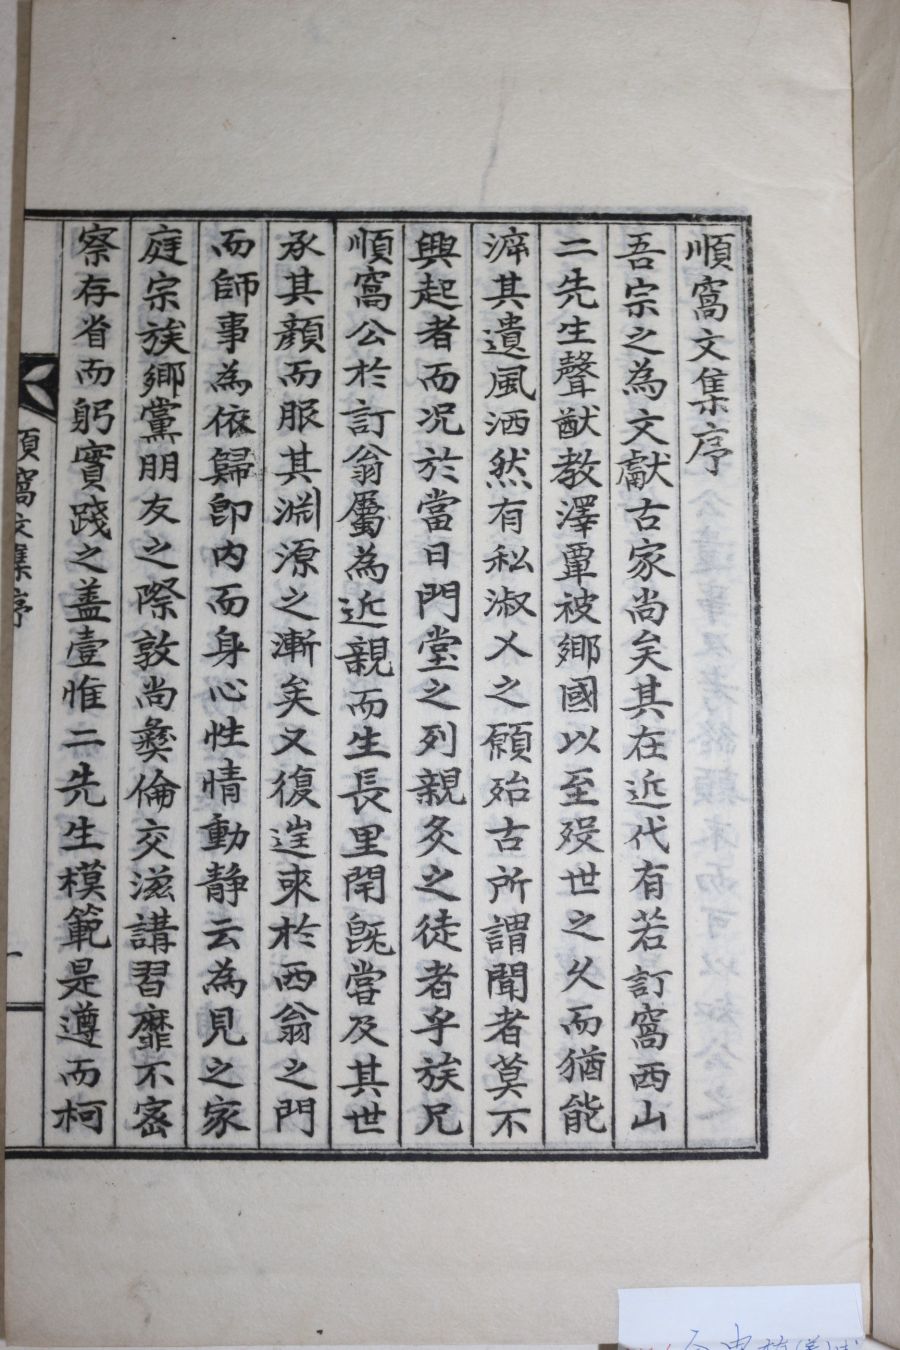 順窩文集序
吾宗之為文獻古家尚矣其在近代有若訂窩西山
二先生聲猷教澤覃被鄉國以至歿世之久而猶能
滹其遺風洒然有私淑乂之願殆古所謂聞者莫不
興起者而况於當日門堂之列親炙之徒者乎族兄
順窩公於訂翁屬為近親而生長里閈旣嘗及其世
承其顔而服其淵源之漸矣又復遑來於西翁之門
而師事為依歸卽内而身心性情動静云為見之家
庭宗族鄉黨朋友之際敦尚彛倫交滋講習靡不宻
察存省而躬實踐之盖壹惟二先生模範是遵而柯
順窩文集序
一